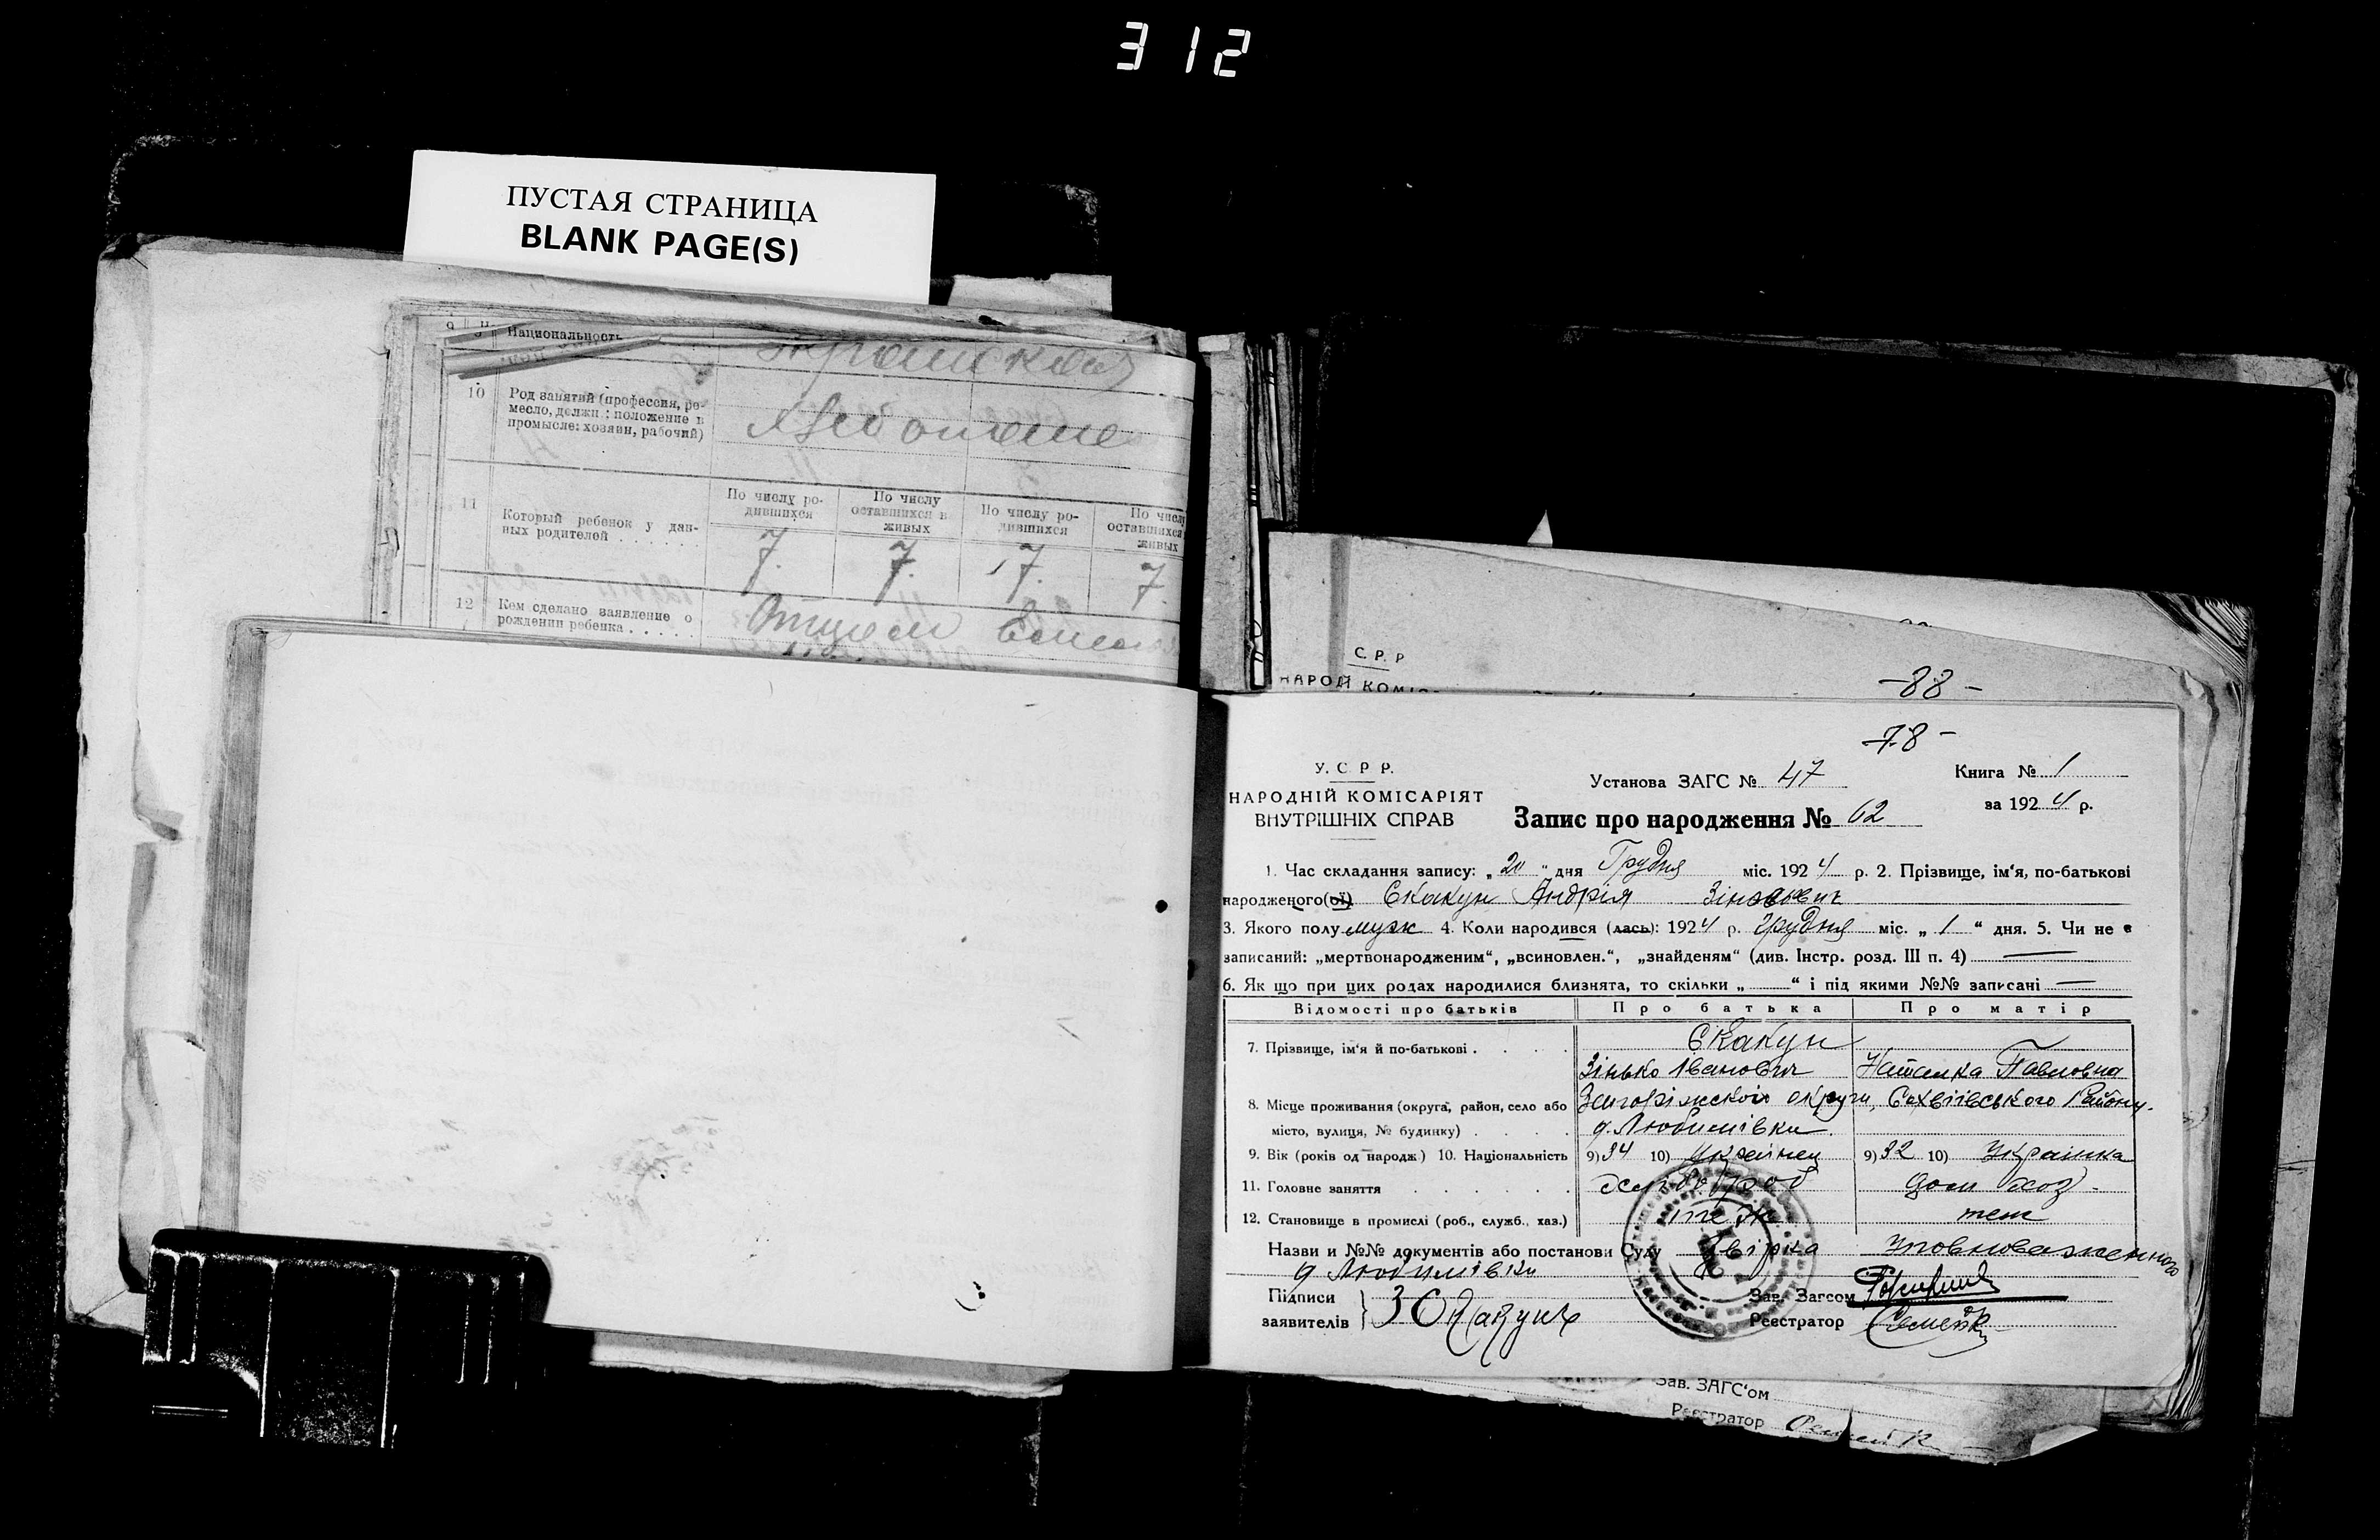 312
ПУСТАЯ СТРАНИЦА
BLANK PAGE(S)
Национальность
10 Род занятий (профессия, ре-
месло, должн: положение в
промысле: хозяин, рабочий)
11 Который ребенок у дан-
ных родителей . . . . . .
По числу ро-
дившихся
По числу
оставшихся в
живых
По числу ро-
дившихся
По числу
оставшихся
живых
7. 7. 7. 7.
12 Кем сделано заявление о
рождении ребенка . . . . .
Отцом
С. Р. Р
НАРОД КОМІС
-88-
-78-
У. С Р Р.
НАРОДНІЙ КОМІСАРІЯТ
ВНУТРІШНІХ СПРАВ
Установа ЗАГС № 47
Книга № 1
за 1924 р.
Запис про народження № 62
1. Час складання запису: „20" дня Грудня міс. 1924 р. 2. Прізвище, ім'я, по-батькові
народженого(ої) Скакун Андрія Зінькович
3. Якого полу муж 4. Коли народився (лась): 1924 р. грудня міс. „1" дня. 5. Чи не є
записаний: „мертвонародженим", „всиновлен.", „знайденям" (див. Інстр. розд. III п. 4) —
6. Як що при цих родах народилися близнята, то скільки „ " і під якими №№ записані —
Відомості про батьків Про батька Про матір
7. Прізвище, ім'я й по-батькові . . . . Скакун
Зінько Іванович Наталка Павловна
8. Місце проживання (округа, район, село або Запоріжської округи, Софіївського Району.
місто, вулиця, № будинку) . . . . д. Любимівки.
9. Вік (років од народж) 10. Національність 9) 34 10) Украінец 9) 32 10) Украінка
11. Головне заняття . . . . . . хлібороб дом хоз
12. Становище в промислі (роб., служб., хаз.) теж теж
Назви и №№ документів або постанови Суду Звірка Уповноваженного
д Любимівки
Підписи
заявителів
З Скакунъ
Зав. Загсом
Реєстратор
Зав. ЗАГС'ом
Реєстратор